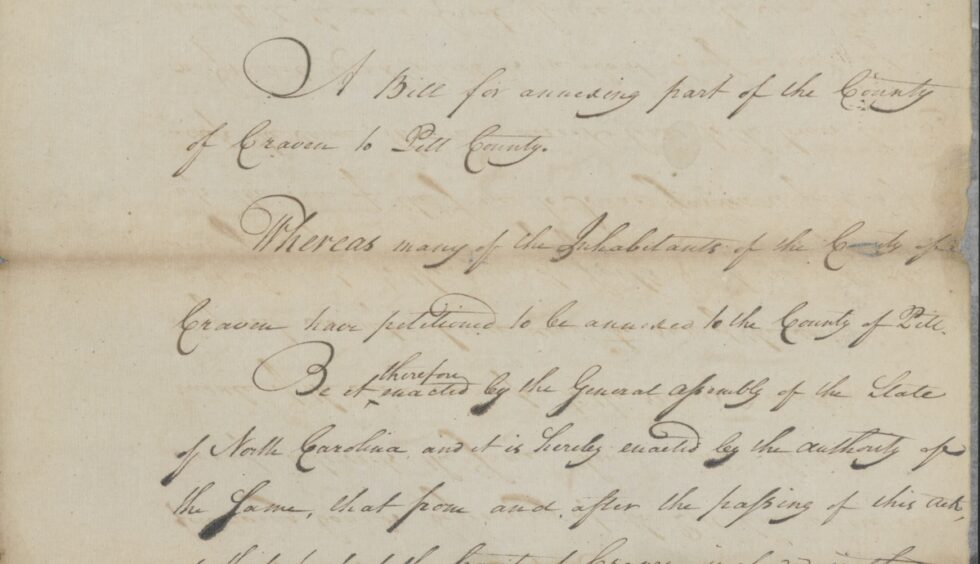 A Bill for annexing part of the County
of Craven to Pitt County.
Whereas many of the Inhabitants of the County of
Craven have petitioned to be annexed to the County of Pitt.
therefore
Be it enacted by the General assembly of the State
of North Carolina and it is hereby enacted by the authority of
the Same, that from and after the passing of this act,